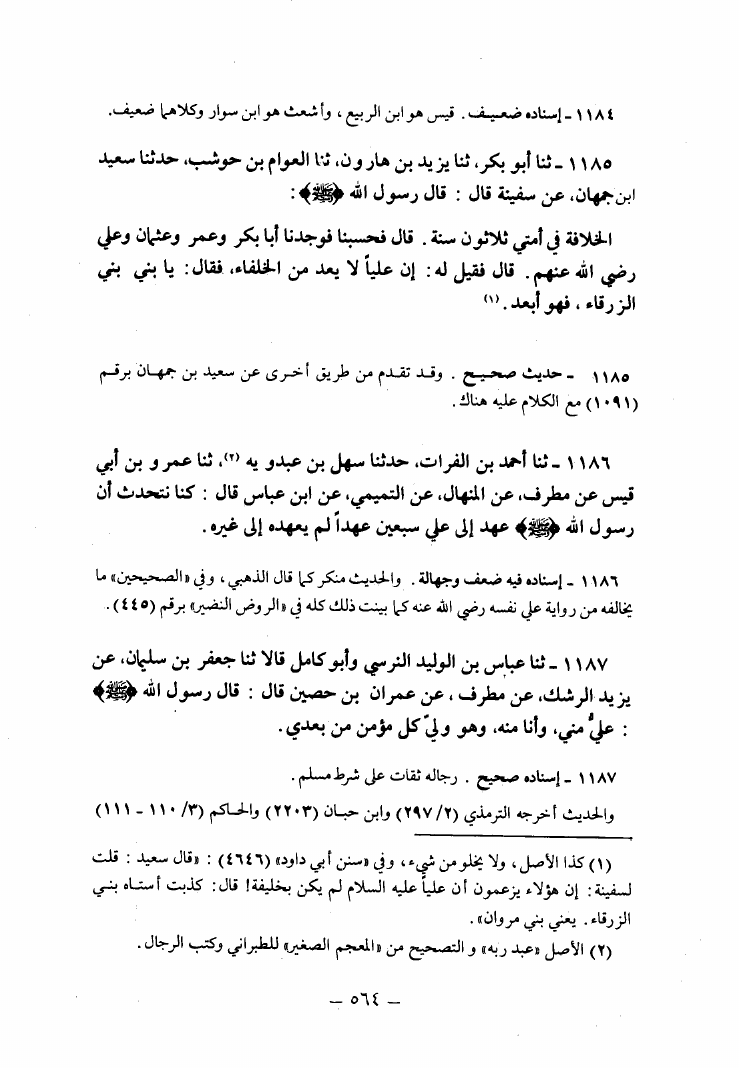 ١١٨٤ ـ إسناده ضعيف . قيس هو ابن الربيع ، وأشعث هو ابن سوار وكلاهما ضعيف.
١١٨٥ ـ ثنا أبو بكر، ثنا يزيد بن هارون، ثنا العوام بن حوشب، حدثنا سعيد
ابن جمهان، عن سفينة قال : قال رسول الله ﴿ﷺ﴾ :
الخلافة في أمتي ثلاثون سنة . قال فحسبنا فوجدنا أبا بكر وعمر وعثمان وعلي
رضي الله عنهم . قال فقيل له : إن علياً لا يعد من الخلفاء، فقال : يا بني بني
الزرقاء ، فهو أبعد . (١)
١١٨٥ ـ حديث صحيح . وقد تقدم من طريق أخرى عن سعيد بن جمهان برقم
(١٠٩١) مع الكلام عليه هناك .
١١٨٦ ـ ثنا أحمد بن الفرات، حدثنا سهل بن عبدو يه (٢)، ثنا عمرو بن أبي
قيس عن مطرف، عن المنهال، عن التميمي، عن ابن عباس قال : كنا نتحدث أن
رسول الله ﴿ﷺ﴾ عهد إلى علي سبعين عهداً لم يعهده إلى غيره .
١١٨٦ ـ إسناده فيه ضعف وجهالة . والحديث منكر كما قال الذهبي ، وفي «الصحيحين» ما
يخالفه من رواية علي نفسه رضي الله عنه كما بينت ذلك كله في «الروض النضير» برقم (٤٤٥) .
١١٨٧ ـ ثنا عباس بن الوليد النرسي وأبو كامل قالا ثنا جعفر بن سليمان، عن
يزيد الرشك، عن مطرف ، عن عمران بن حصين قال : قال رسول الله ﴿ﷺ﴾
: عليٌّ مني، وأنا منه، وهو وليّ كل مؤمن من بعدي .
١١٨٧ ـ إسناده صحيح . رجاله ثقات على شرط مسلم .
والحديث أخرجه الترمذي (٢/ ٢٩٧) وابن حبان (٢٢٠٣) والحاكم (٣/ ١١٠ ـ ١١١)
(١) كذا الأصل ، ولا يخلو من شيء ، وفي «سنن أبي داود» (٤٦٤٦) : «قال سعيد : قلت
لسفينة : إن هؤلاء يزعمون أن علياً عليه السلام لم يكن بخليفة! قال : كذبت أستاه بني
الزرقاء . يعني بني مروان» .
(٢) الأصل «عبد ربه» و التصحيح من «المعجم الصغير» للطبراني وكتب الرجال .
ـ ٥٦٤ ـ